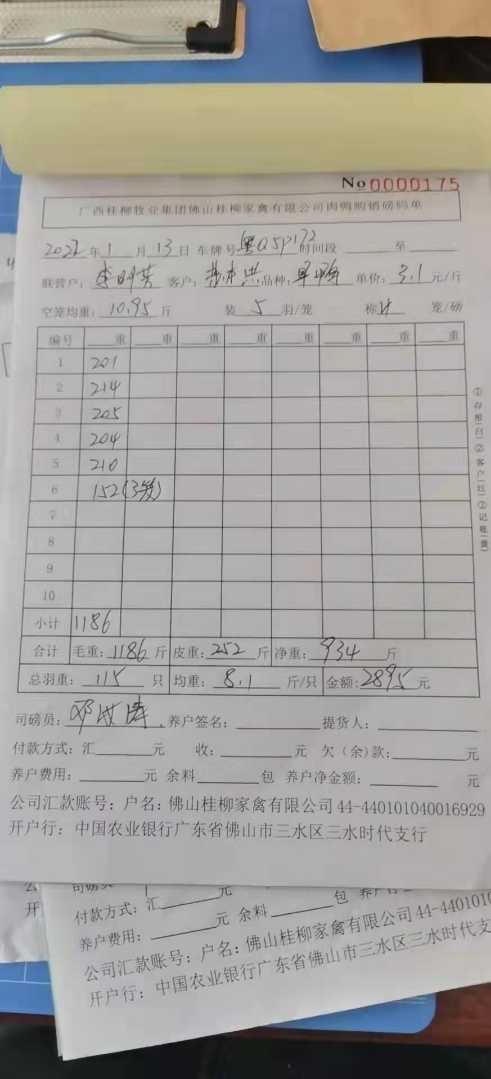 No 0000175
广西桂柳牧业集团佛山桂柳家禽有限公司肉鸭购销磅码单
2022年1月13日 车牌号 粤Q5P172 时间段 至
联营户: 客户: 品种: 单价: 3.1 元/斤
空笼均重: 10.95 斤 装 5 羽/笼 称 4 笼/磅
编号 重 重 重 重 重 重 重
1 201
2 214
3 205
4 204
5 210
6 152(3笼)
7
8
9
10
小计 1186
合计 毛重: 1186 斤 皮重: 252 斤 净重: 934 斤
总羽重: 115 只 均重: 8.1 斤/只 金额: 2895 元
司磅员: 养户签名: 提货人:
付款方式: 汇 元 收: 元 欠(余)款: 元
养户费用: 元 余料 包 养户净金额: 元
公司汇款账号: 户名: 佛山桂柳家禽有限公司 44-440101040016929
开户行: 中国农业银行广东省佛山市三水区三水时代支行
①存根(白)②客户(红)③记账(黄)
司磅
付款方式: 汇 元
养户费用: 元 余料 包 养户
公司汇款账号: 户名: 佛山桂柳家禽有限公司 44-440101
开户行: 中国农业银行广东省佛山市三水区三水时代支